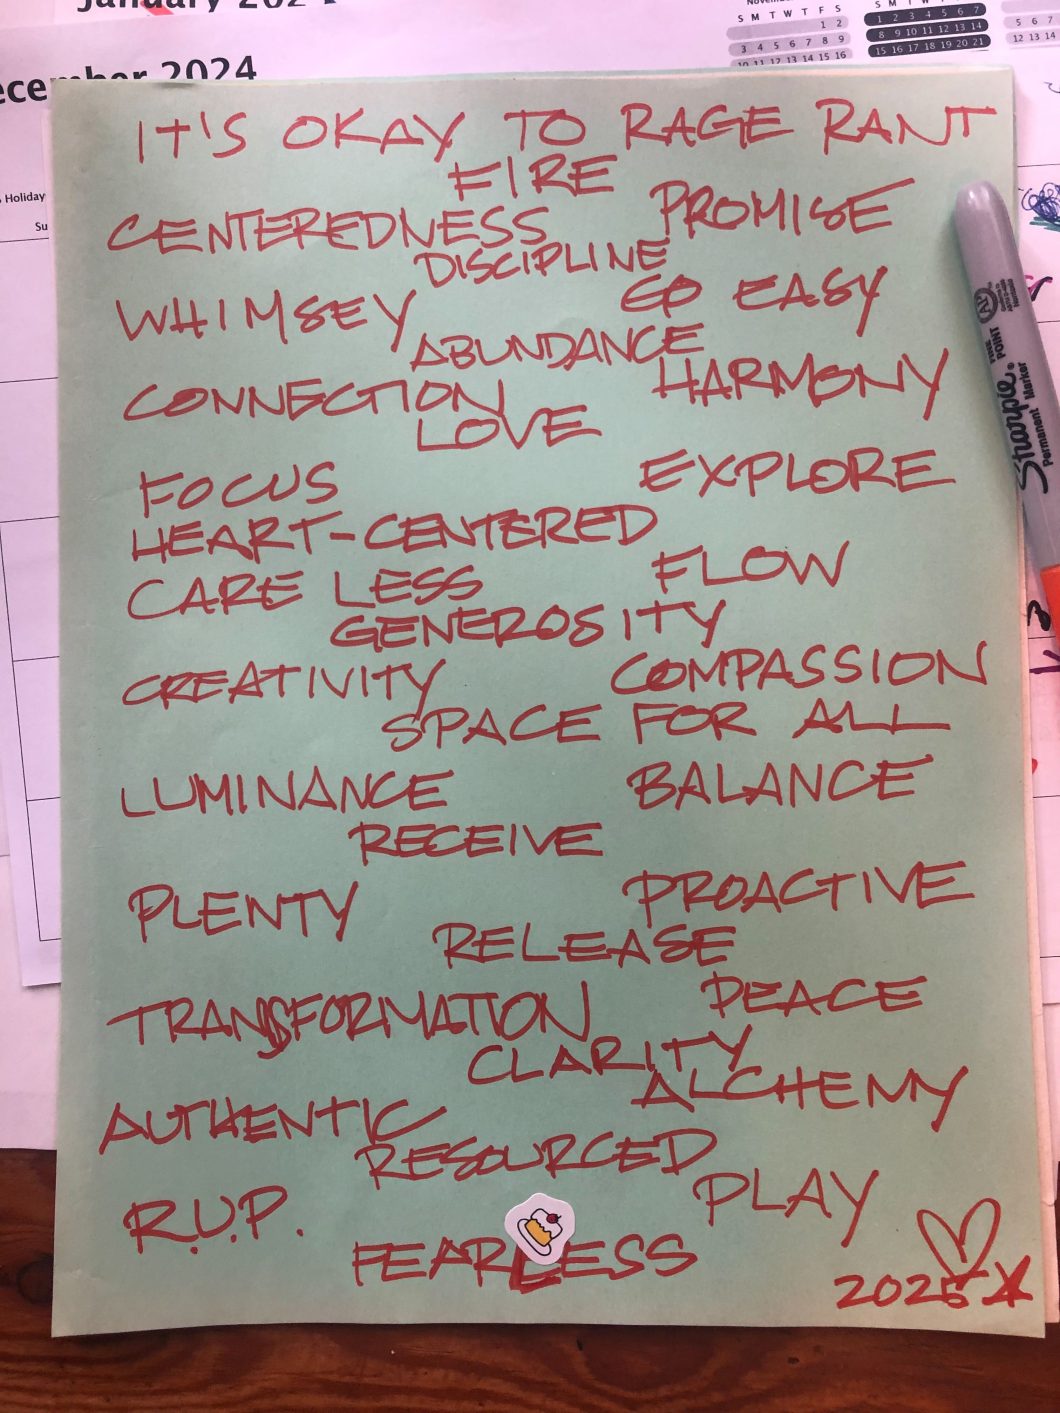 January 202
December 2024
Novem
S M T W T F S
1 2
3 4 5 6 7 8 9
10 11 12 13 14 15 16
S M T W T F S
1 2 3 4 5 6 7
8 9 10 11 12 13 14
15 16 17 18 19 20 21
5 6 7
12 13 14
Holiday
Su
IT'S OKAY TO RAGE RANT
FIRE
CENTEREDNESS
PROMISE
DISCIPLINE
WHIMSEY
GO EASY
ABUNDANCE
CONNECTION
HARMONY
LOVE
FOCUS
EXPLORE
HEART-CENTERED
CARE LESS
FLOW
GENEROSITY
CREATIVITY
COMPASSION
SPACE FOR ALL
LUMINANCE
BALANCE
RECEIVE
PLENTY
PROACTIVE
RELEASE
TRANSFORMATION
PEACE
CLARITY
ALCHEMY
AUTHENTIC
RESOURCED
R.U.P.
PLAY
FEARLESS
2025
Sharpie
FINE POINT
Permanent Marker
AP
3